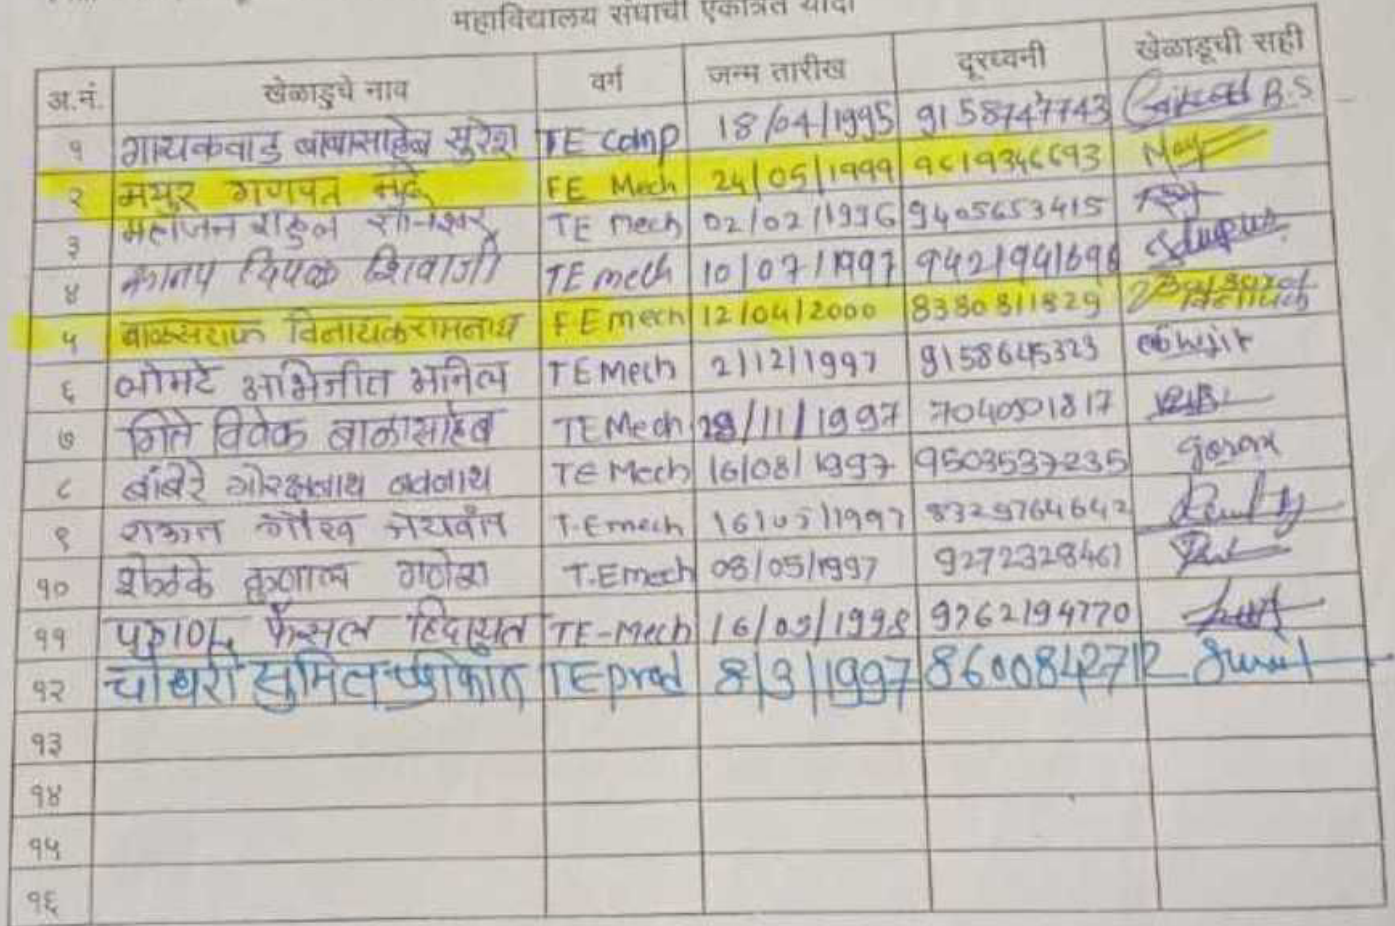 महाविद्यालय संघाची एकत्रित यादी
अ.नं. खेळाडुचे नाव वर्ग जन्म तारीख दूरध्वनी खेळाडूची सही
१ गायकवाड बाबासाहेब सुरेश TE Comp 18/04/1995 9158747743 B.S
२ मयुर गणपत FE Mech 24/05/1999 9619346693 May
३ महाजन राहुल TE Mech 02/02/1996 9405653415
४ दिपक शिवाजी TE mech 10/07/1997
५ बाळसराफ विनायक रामनाथ FE mech 12/04/2000 8380811829 Balsaraf विनायक
६ लोमटे अभिजीत अनिल TE Mech 2/12/1997 9158645323 abhijit
७ गिते विवेक बाळासाहेब TE Mech 29/11/1997 7040901817
८ बांबेरे गोरक्षनाथ नवनाथ TE Mech 16/08/1997 9503537235
९ राऊत गौरव जयवंत T.E mech 16/05/1997 8329764642
१० शेळके कुणाल गणेश T.E mech 08/05/1997 9272328461
११ पठाण फैसल हिदायत TE-Mech 16/05/1998 9762194770
१२ चौधरी सुमित TE prod 8/3/1997 8600842712 Sumit
१३
१४
१५
१६